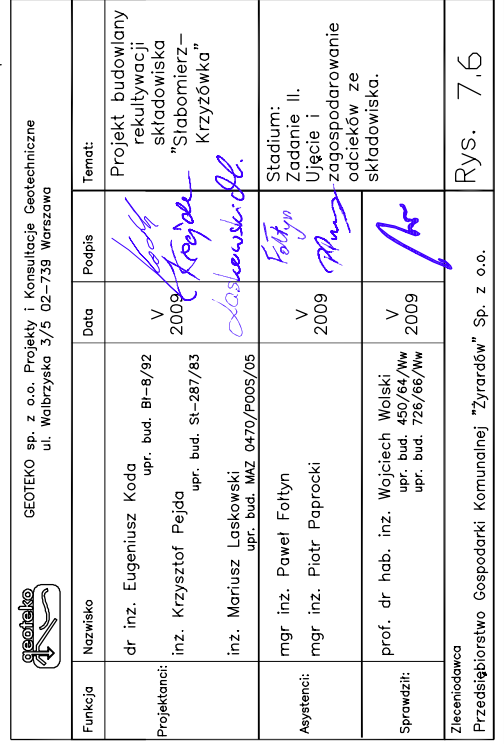 geoteko
GEOTEKO sp. z o.o. Projekty i Konsultacje Geotechniczne
ul. Wałbrzyska 3/5 02–739 Warszawa
Funkcja Nazwisko Data Podpis Temat:
Projektanci:
dr inż. Eugeniusz Koda
upr. bud. Bł–8/92
inż. Krzysztof Pejda
upr. bud. St–287/83
inż. Mariusz Laskowski
upr. bud. MAZ 0470/POOS/05
V
2009
Koda
Pejda
Laskowski M.
Projekt budowlany
rekultywacji
składowiska
"Słabomierz–
Krzyżówka"
Asystenci:
mgr inż. Paweł Fołtyn
mgr inż. Piotr Paprocki
V
2009
Fołtyn
Stadium:
Zadanie II.
Ujęcie i
zagospodarowanie
odcieków ze
składowiska.
Sprawdził:
prof. dr hab. inż. Wojciech Wolski
upr. bud. 450/64/Ww
upr. bud. 726/66/Ww
V
2009
Zleceniodawca
Przedsiębiorstwo Gospodarki Komunalnej "Żyrardów" Sp. z o.o.
Rys. 7.6